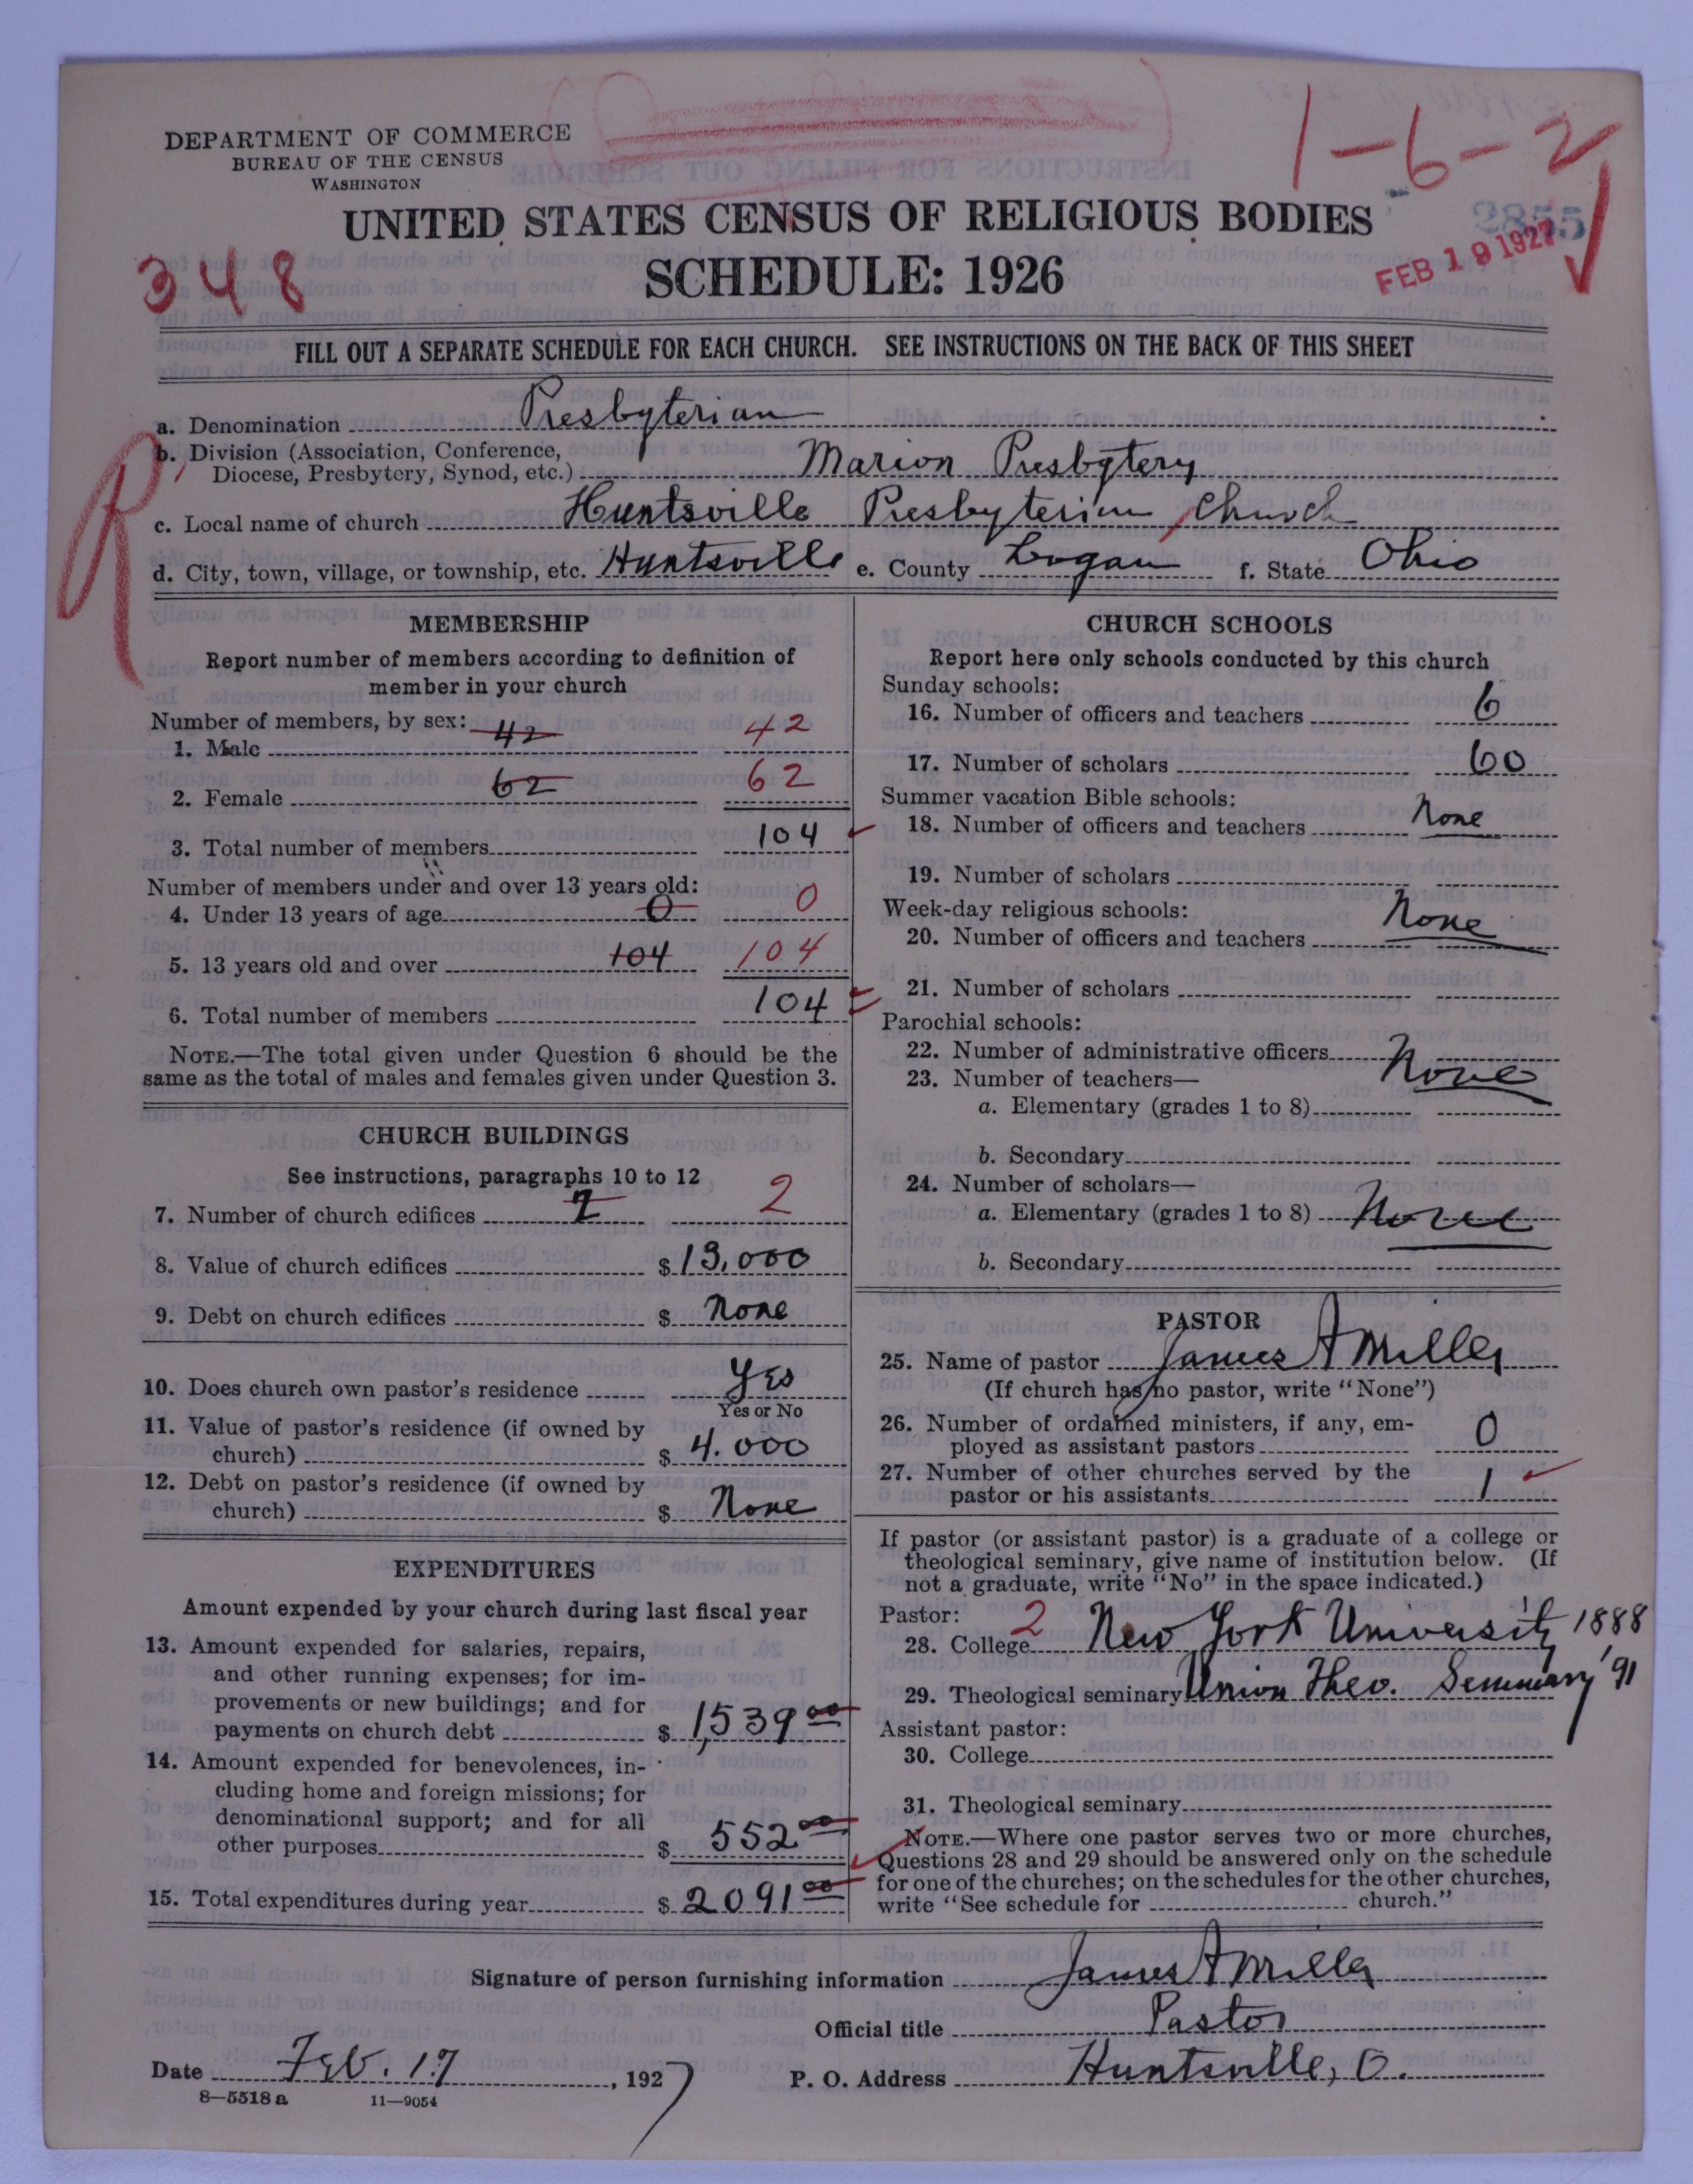 1-6-2
DEPARTMENT OF COMMERCE
BUREAU OF THE CENSUS
WASHINGTON
UNITED STATES CENSUS OF RELIGIOUS BODIES
2855
348
SCHEDULE: 1926
FEB 19 1927
FILL OUT A SEPARATE SCHEDULE FOR EACH CHURCH. SEE INSTRUCTIONS ON THE BACK OF THIS SHEET
R
a. Denomination Presbyterian
b. Division (Association, Conference,
Diocese, Presbytery, Synod, etc.) Marion Presbytery
c. Local name of church Huntsville Presbyterian Church
d. City, town, village, or township, etc. Huntsville e. County Logan f. State Ohio
MEMBERSHIP
Report number of members according to definition of
member in your church
Number of members, by sex:
1. Male 42 42
2. Female 62 62
3. Total number of members 104
Number of members under and over 13 years old:
4. Under 13 years of age 0 0
5. 13 years old and over 104 104
6. Total number of members 104
NOTE.—The total given under Question 6 should be the
same as the total of males and females given under Question 3.
CHURCH BUILDINGS
See instructions, paragraphs 10 to 12
7. Number of church edifices 2
8. Value of church edifices $ 13,000
9. Debt on church edifices $ None
10. Does church own pastor's residence Yes
Yes or No
11. Value of pastor's residence (if owned by
church) $ 4.000
12. Debt on pastor's residence (if owned by
church) $ None
EXPENDITURES
Amount expended by your church during last fiscal year
13. Amount expended for salaries, repairs,
and other running expenses; for im-
provements or new buildings; and for
payments on church debt $ 1,539 00
14. Amount expended for benevolences, in-
cluding home and foreign missions; for
denominational support; and for all
other purposes $ 552 00
15. Total expenditures during year $ 2091 00
CHURCH SCHOOLS
Report here only schools conducted by this church
Sunday schools:
16. Number of officers and teachers 6
17. Number of scholars 60
Summer vacation Bible schools:
18. Number of officers and teachers None
19. Number of scholars
Week-day religious schools:
20. Number of officers and teachers None
21. Number of scholars
Parochial schools:
22. Number of administrative officers None
23. Number of teachers—
a. Elementary (grades 1 to 8)
b. Secondary
24. Number of scholars—
a. Elementary (grades 1 to 8) None
b. Secondary
PASTOR
25. Name of pastor James A Miller
(If church has no pastor, write "None")
26. Number of ordained ministers, if any, em-
ployed as assistant pastors 0
27. Number of other churches served by the
pastor or his assistants 1
If pastor (or assistant pastor) is a graduate of a college or
theological seminary, give name of institution below. (If
not a graduate, write "No" in the space indicated.)
Pastor:
28. College 2 New York University 1888
29. Theological seminary Union Theo. Seminary '91
Assistant pastor:
30. College
31. Theological seminary
NOTE.—Where one pastor serves two or more churches,
Questions 28 and 29 should be answered only on the schedule
for one of the churches; on the schedules for the other churches,
write "See schedule for church."
Signature of person furnishing information James A Miller
Official title Pastor
Date Feb. 17, 1927 P. O. Address Huntsville, O.
8—5518 a 11—9054